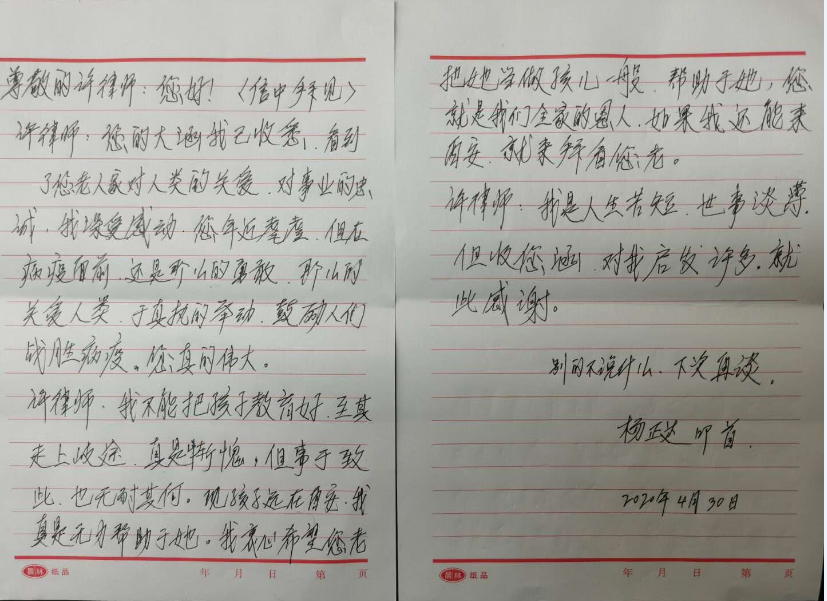 尊敬的许律师：您好！〈信中拜见〉
许律师：您的大涵我已收悉，看到
了您老人家对人类的关爱、对事业的忠
诚，我深受感动。您年近耄耋，但在
病疫面前、还是那么的勇敢、那么的
关爱人类、于真执的举动、鼓励人们
战胜病疫。您真的伟大。
许律师、我不能把孩子教育好、至其
走上岐途、真是惭愧，但事于致
此、也无耐其何。现孩子远在西安、我
真是无力帮助于她。我衷心希望您老
儒林 纸品
年 月 日 第 页
把她当做孩儿一般、帮助于她，您
就是我们全家的恩人、如果我还能来
西安、就来拜看您老。
许律师：我是人生苦短、世事淡薄，
但收您涵、对我启发许多。就
此感谢。
别的不说什么、下次再谈。
杨正 叩首.
2020年4月30日
纸品
年 月 日 第 页